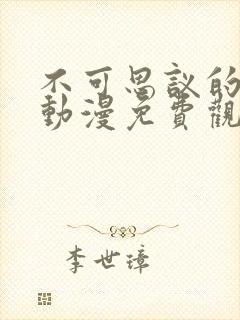 不可思議的
動漫免費觀
李世璋